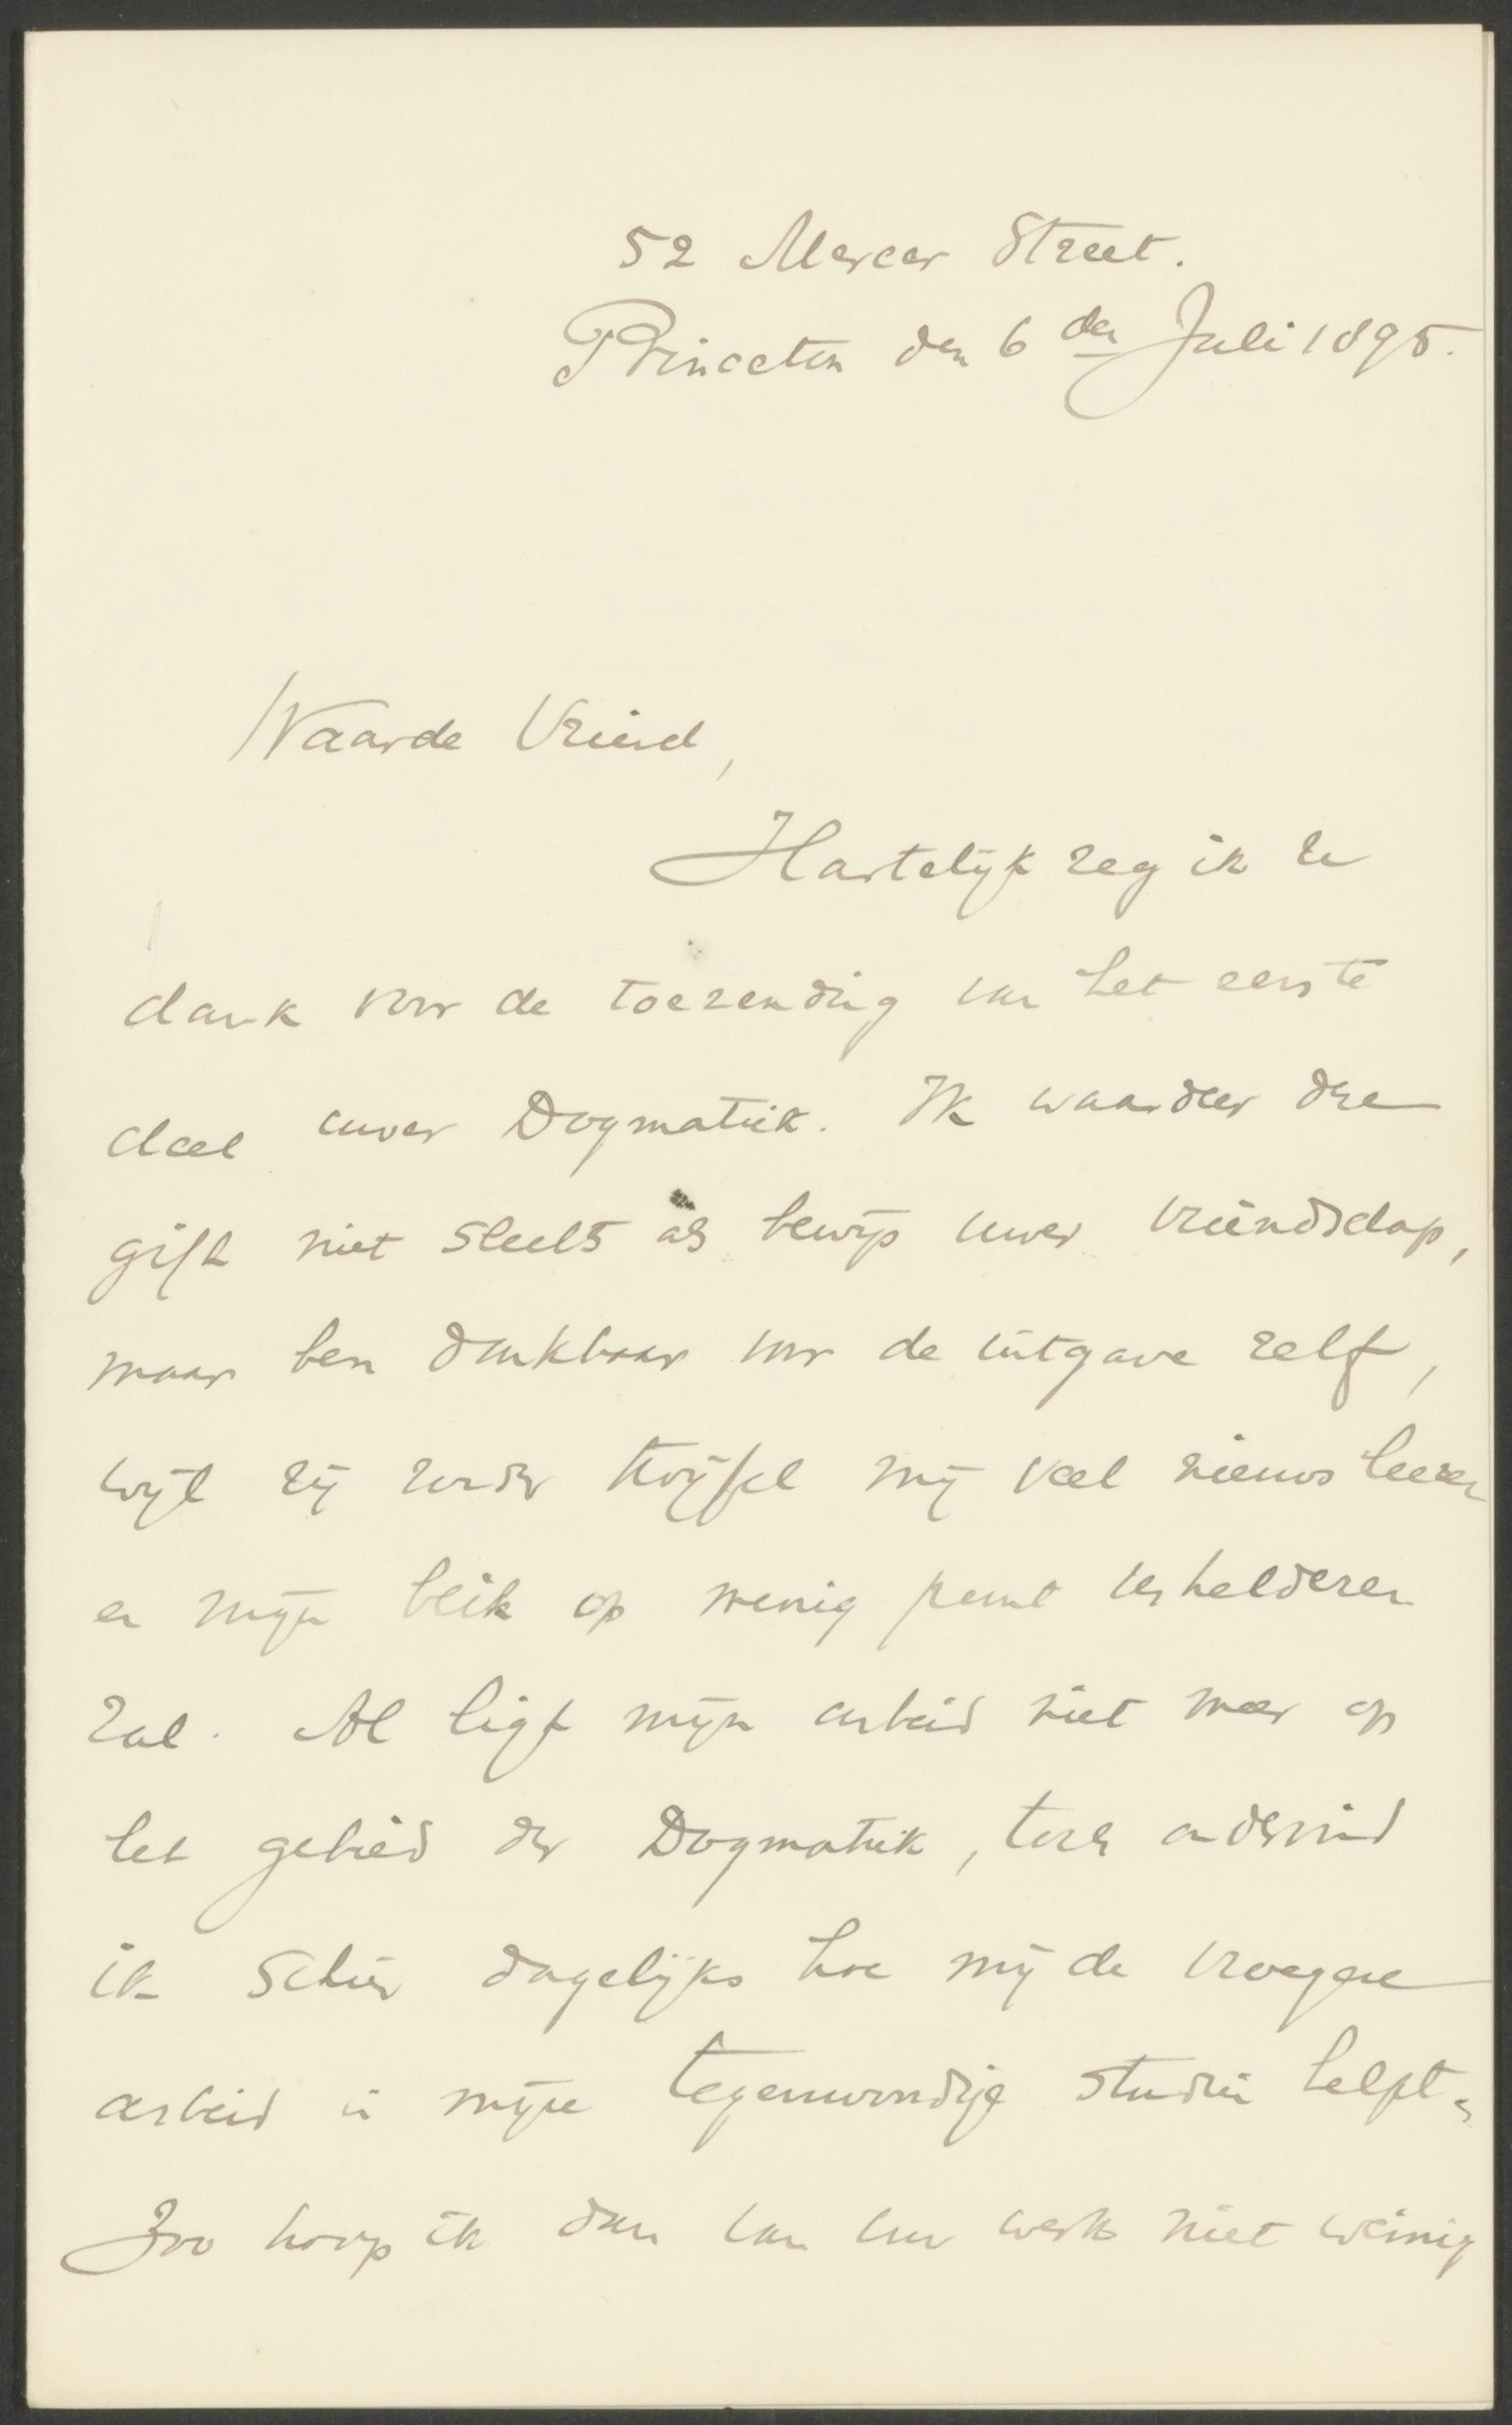 52 Mercer Street.
Princeton den 6den Juli 1895.
Waarde Vriend,
Hartelijk zeg ik U
dank voor de toezending van het eerste
deel uwer Dogmatiek. Ik waardeer die
gift niet slechts als bewijs uwer vriendschap,
maar ben dankbaar voor de uitgave zelf,
wijl zij zonder twijfel mij veel nieuws leeren
en mijn blik op menig punt verhelderen
zal. Al ligt mijn arbeid niet meer op
het gebied der Dogmatiek, toch ondervind
ik schier dagelijks hoe mij de vroegere
arbeid in mijne tegenwoordige studiën helpt.
Zoo hoop ik dan van uw werk niet weinig